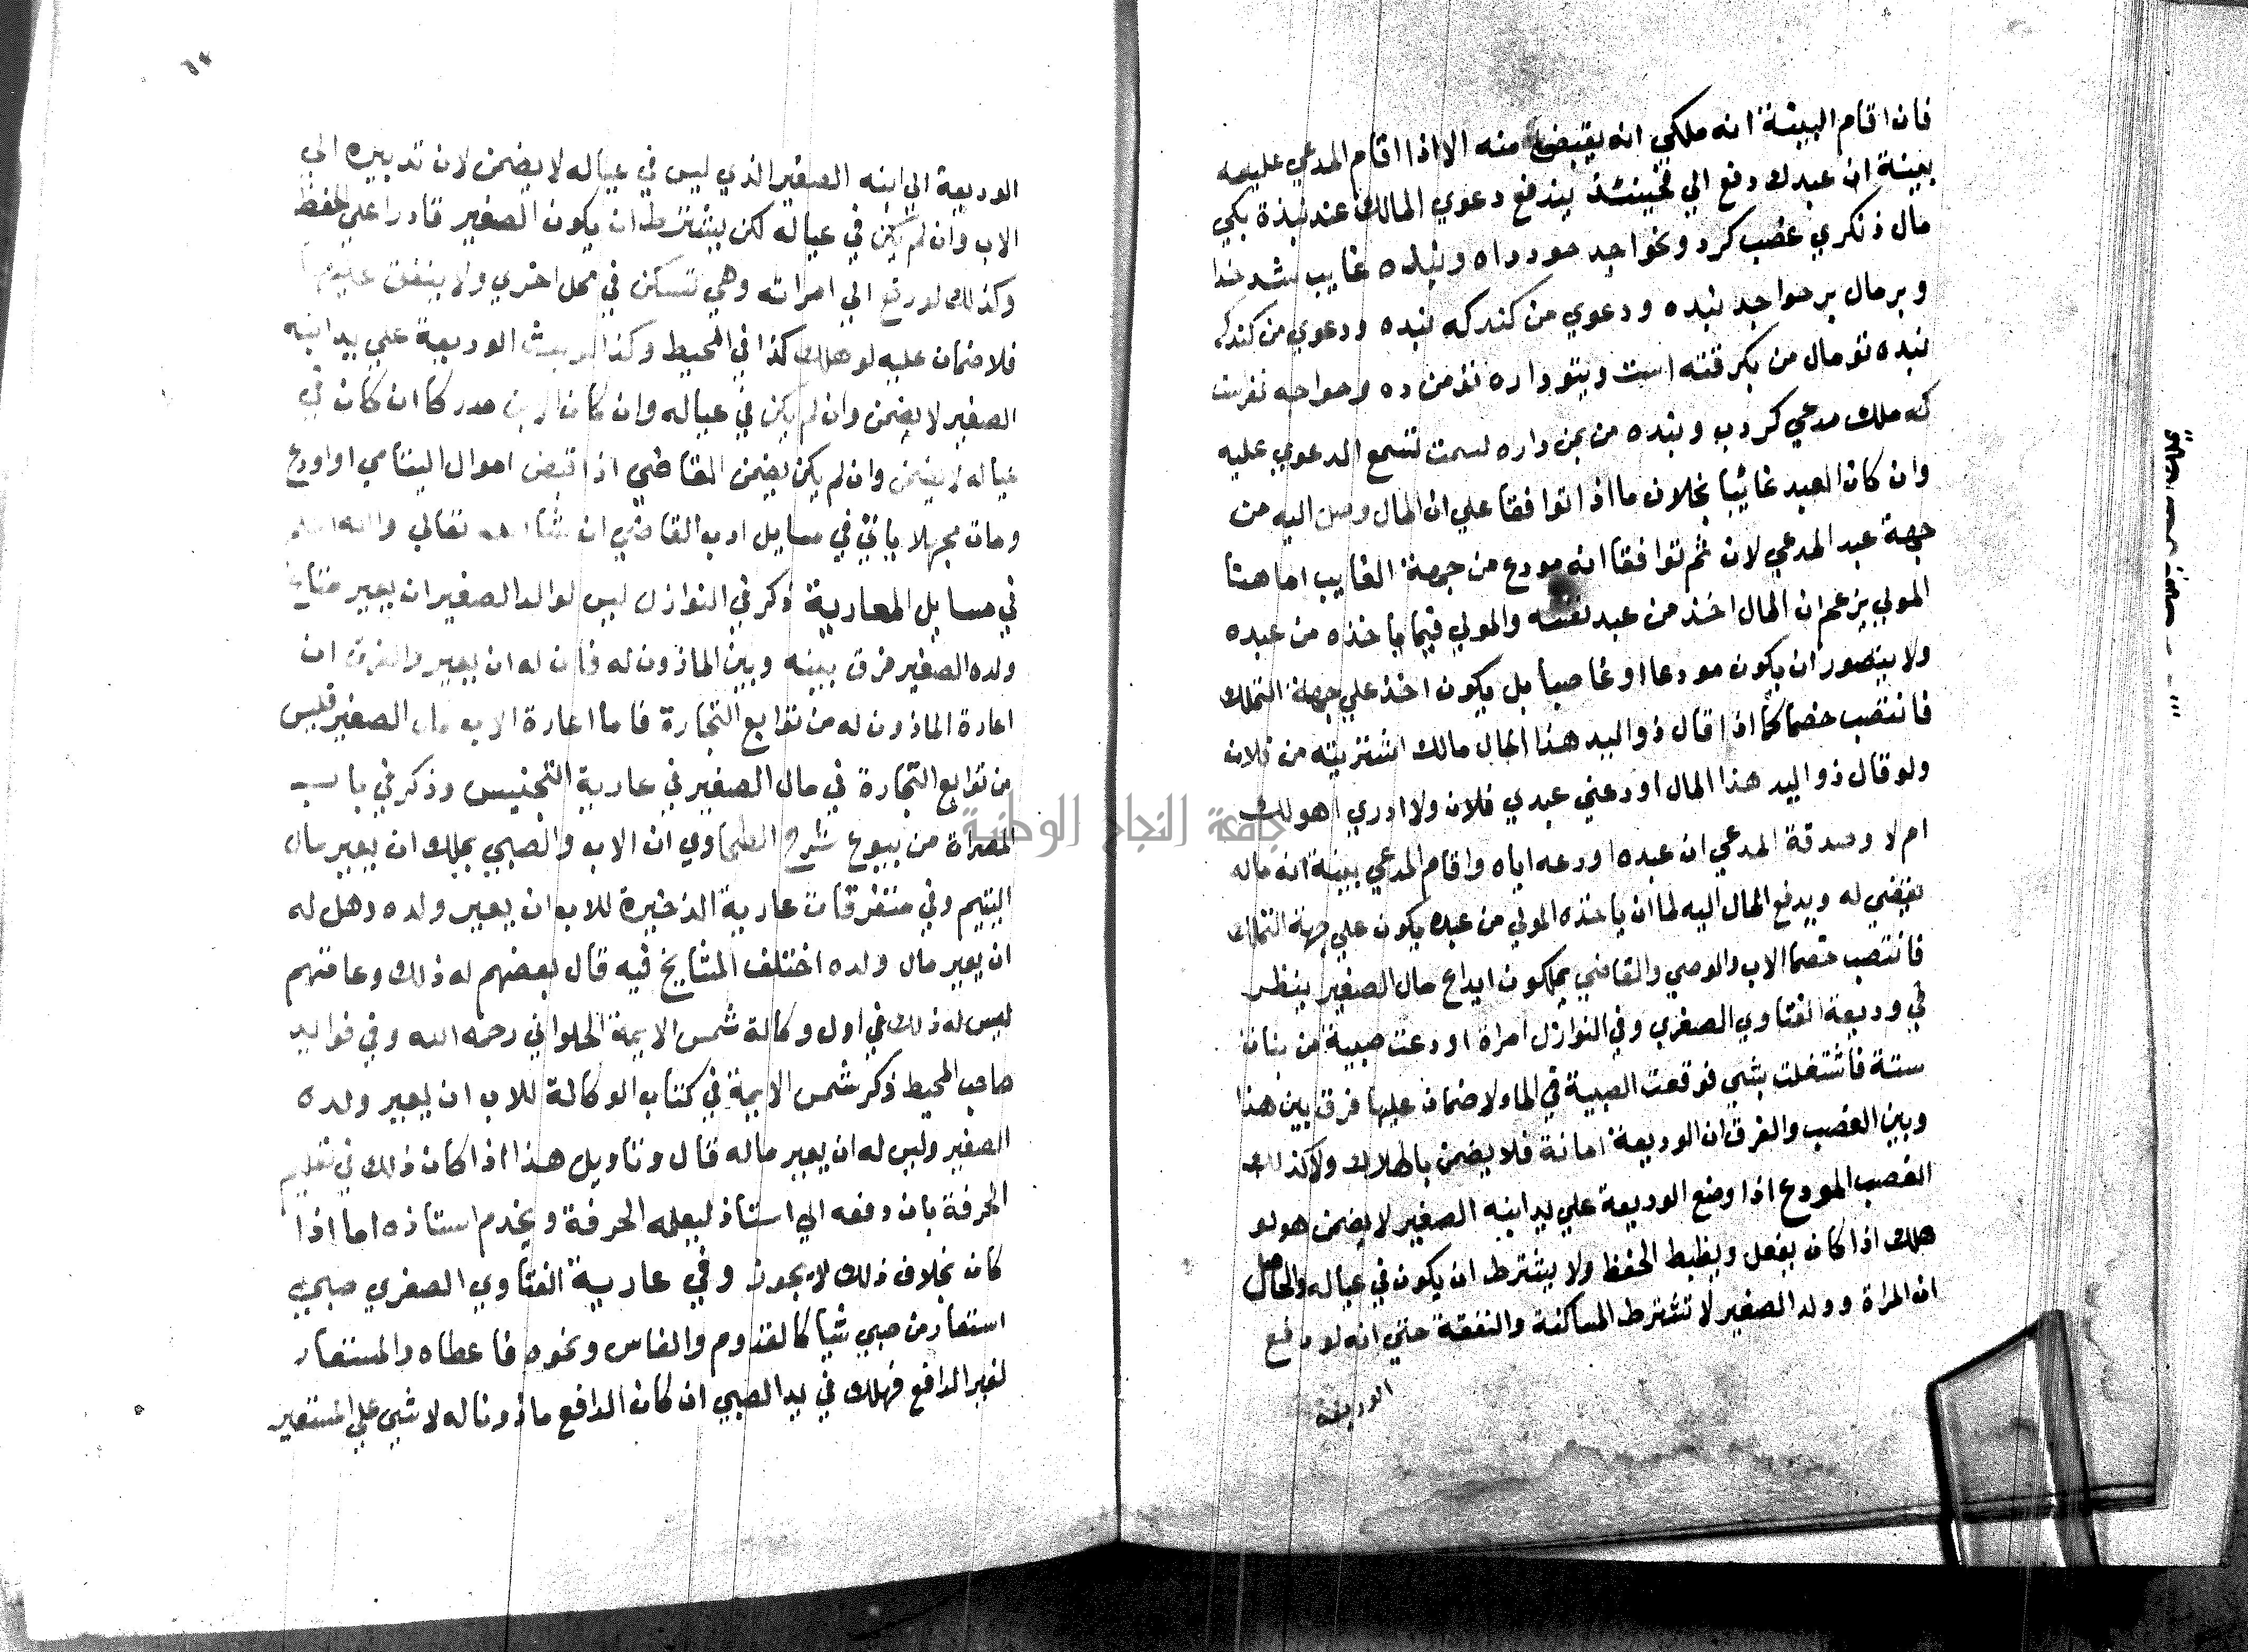 فان اقام البينة انه ملكي انه يقبض منه الا اذا اقام المدعي عليه
بينة ان عبدك دفع الي فحينئذ يندفع دعوي المالك عند
مال غصب كرد وبخواجه خود داد وبنده غايب شد
وبر مال بر خواجه بنده ودعوي من كند كه بنده ودعوي من كند كه
بنده تو مال من بكرفته است وبتو داره
كه ملك مدعي كردب وبنده من بمن داره تسمع الدعوي عليه
وان كان العبد غائبا بخلاف ما اذا توافقا علي ان المال وصل اليه من
جهة عبد المدعي لان ثم توافقا انه مودع من جهة الغايب اما هنا
المولي يزعم ان المال اخذ من عبد نفسه والمولي فيما ياخذه من عبده
ولا يتصور ان يكون مودعا او غاصبا بل يكون اخذ علي جهة التملك
فانتصب خصما كما اذا قال ذو اليد هذا المال مالك اشتريته من فلان
ولو قال ذو اليد هذا المال اودعني عبدي فلان ولا ادري اهو لك
ام لا وصدقة المدعي ان عبده اودعه اياه واقام المدعي بينة انه ماله
يقضي له ويدفع المال اليه لما ان ياخذه المولي من عبده يكون علي جهة التملك
فانتصب خصما الاب والوصي والقاضي يملكون ايداع مال الصغير ينظر
في وديعة الفتاوي الصغري وفي النوازل امراة اودعت صبية من بنات
ستة فاشتغلت بشي فوقعت الصبية في الماء لا ضمان عليها فرق بين هذا
وبين الغصب والفرق ان الوديعة امانة فلا يضمن بالهلاك ولا كذلك
الغصب المودع اذا وضع الوديعة علي يد ابنه الصغير لا يضمن هو لو
هلك اذا كان يفعل ويضبط الحفظ ولا يشترط ان يكون في عياله والحال
ان المراة وولد الصغير لا تشترط المساكنة والنفقة حتي انه لو دفع
الوديعة
الوديعة الي ابنه الصغير الذي ليس في عياله لا يضمن لان تدبيره الي
الاب وان لم يكن في عياله لكن يشترط ان يكون الصغير قادرا علي الحفظ
وكذلك لو دفع الي امراته وهي تسكن في محل اخري ولا ينفق عليها
فلا ضمان عليه لو هلك كذا في المحيط وكذا لو بعث الوديعة علي يد ابنه
الصغير لا يضمن وان لم يكن في عياله وان كان الابن مدركا ان كان في
عياله لا يضمن وان لم يكن يضمن القاضي اذا قبض اموال اليتامي او اودع
ومات مجهلا ياتي في مسايل ادب القاضي ان شا الله تعالي والله اعلم
في مسايل العارية ذكر في النوازل ليس لوالد الصغير ان يعير متاع
ولده الصغير فرق بينه وبين الماذون له فان له ان يعير والفرق ان
اعارة الماذون له من توابع التجارة فاما اعارة الاب مال الصغير فليس
من توابع التجارة في مال الصغير في عارية التجنيس وذكر في باب
المصراة من بيوع شرح الطحاوي ان الاب والصبي يملك ان يعير مال
اليتيم وفي متفرقات عارية الذخيرة للاب ان يعير ولده وهل له
ان يعير مال ولده اختلف المشايخ فيه قال بعضهم له ذلك وعامتهم
ليس له ذلك في اول وكالة شمس الايمة الحلواني رحمه الله وفي فوايد
صاحب المحيط ذكر شمس الايمة في كتاب الوكالة للاب ان يعير ولده
الصغير وليس له ان يعير ماله قال وتاويل هذا اذا كان ذلك في تعليم
الحرفة بان دفعه الي استاذ ليعلمه الحرفة ويخدم استاذه اما اذا
كان بخلاف ذلك لا يجوز وفي عارية الفتاوي الصغري صبي
استعار من صبي شيا كالقدوم والفاس ونحوه فاعطاه والمستعار
لغير الدافع فهلك في يد الصبي ان كان الدافع ماذونا له لا شي علي المستعير
جامعة النجاح الوطنية